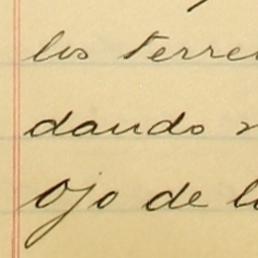 los terre
dando
Ojo de l